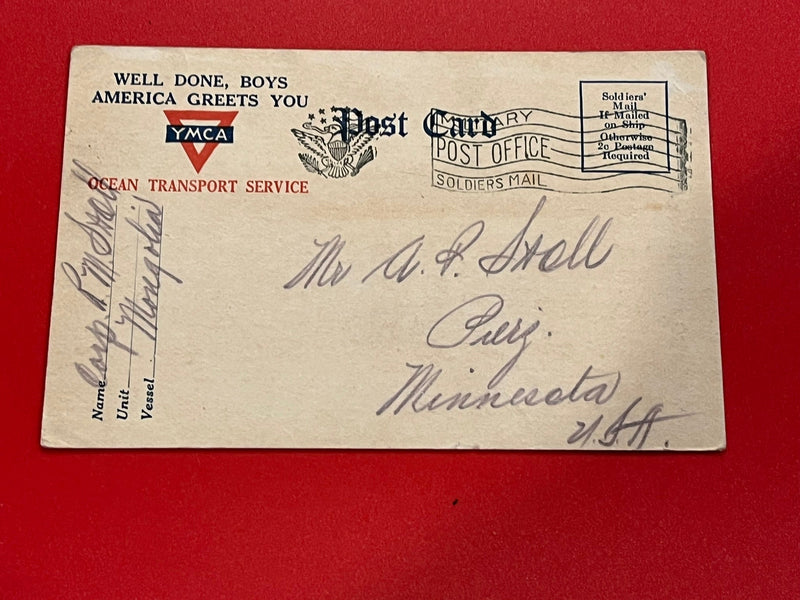 WELL DONE, BOYS
AMERICA GREETS YOU
YMCA
OCEAN TRANSPORT SERVICE
Post Card
MILITARY
POST OFFICE
SOLDIERS MAIL
Soldiers'
Mail
If Mailed
on Ship
Otherwise
2c Postage
Required
Name Corp. P M Stoll
Unit
Vessel Mongolia
Mr A. P. Stoll
Pierz.
Minnesota
U.S.A.